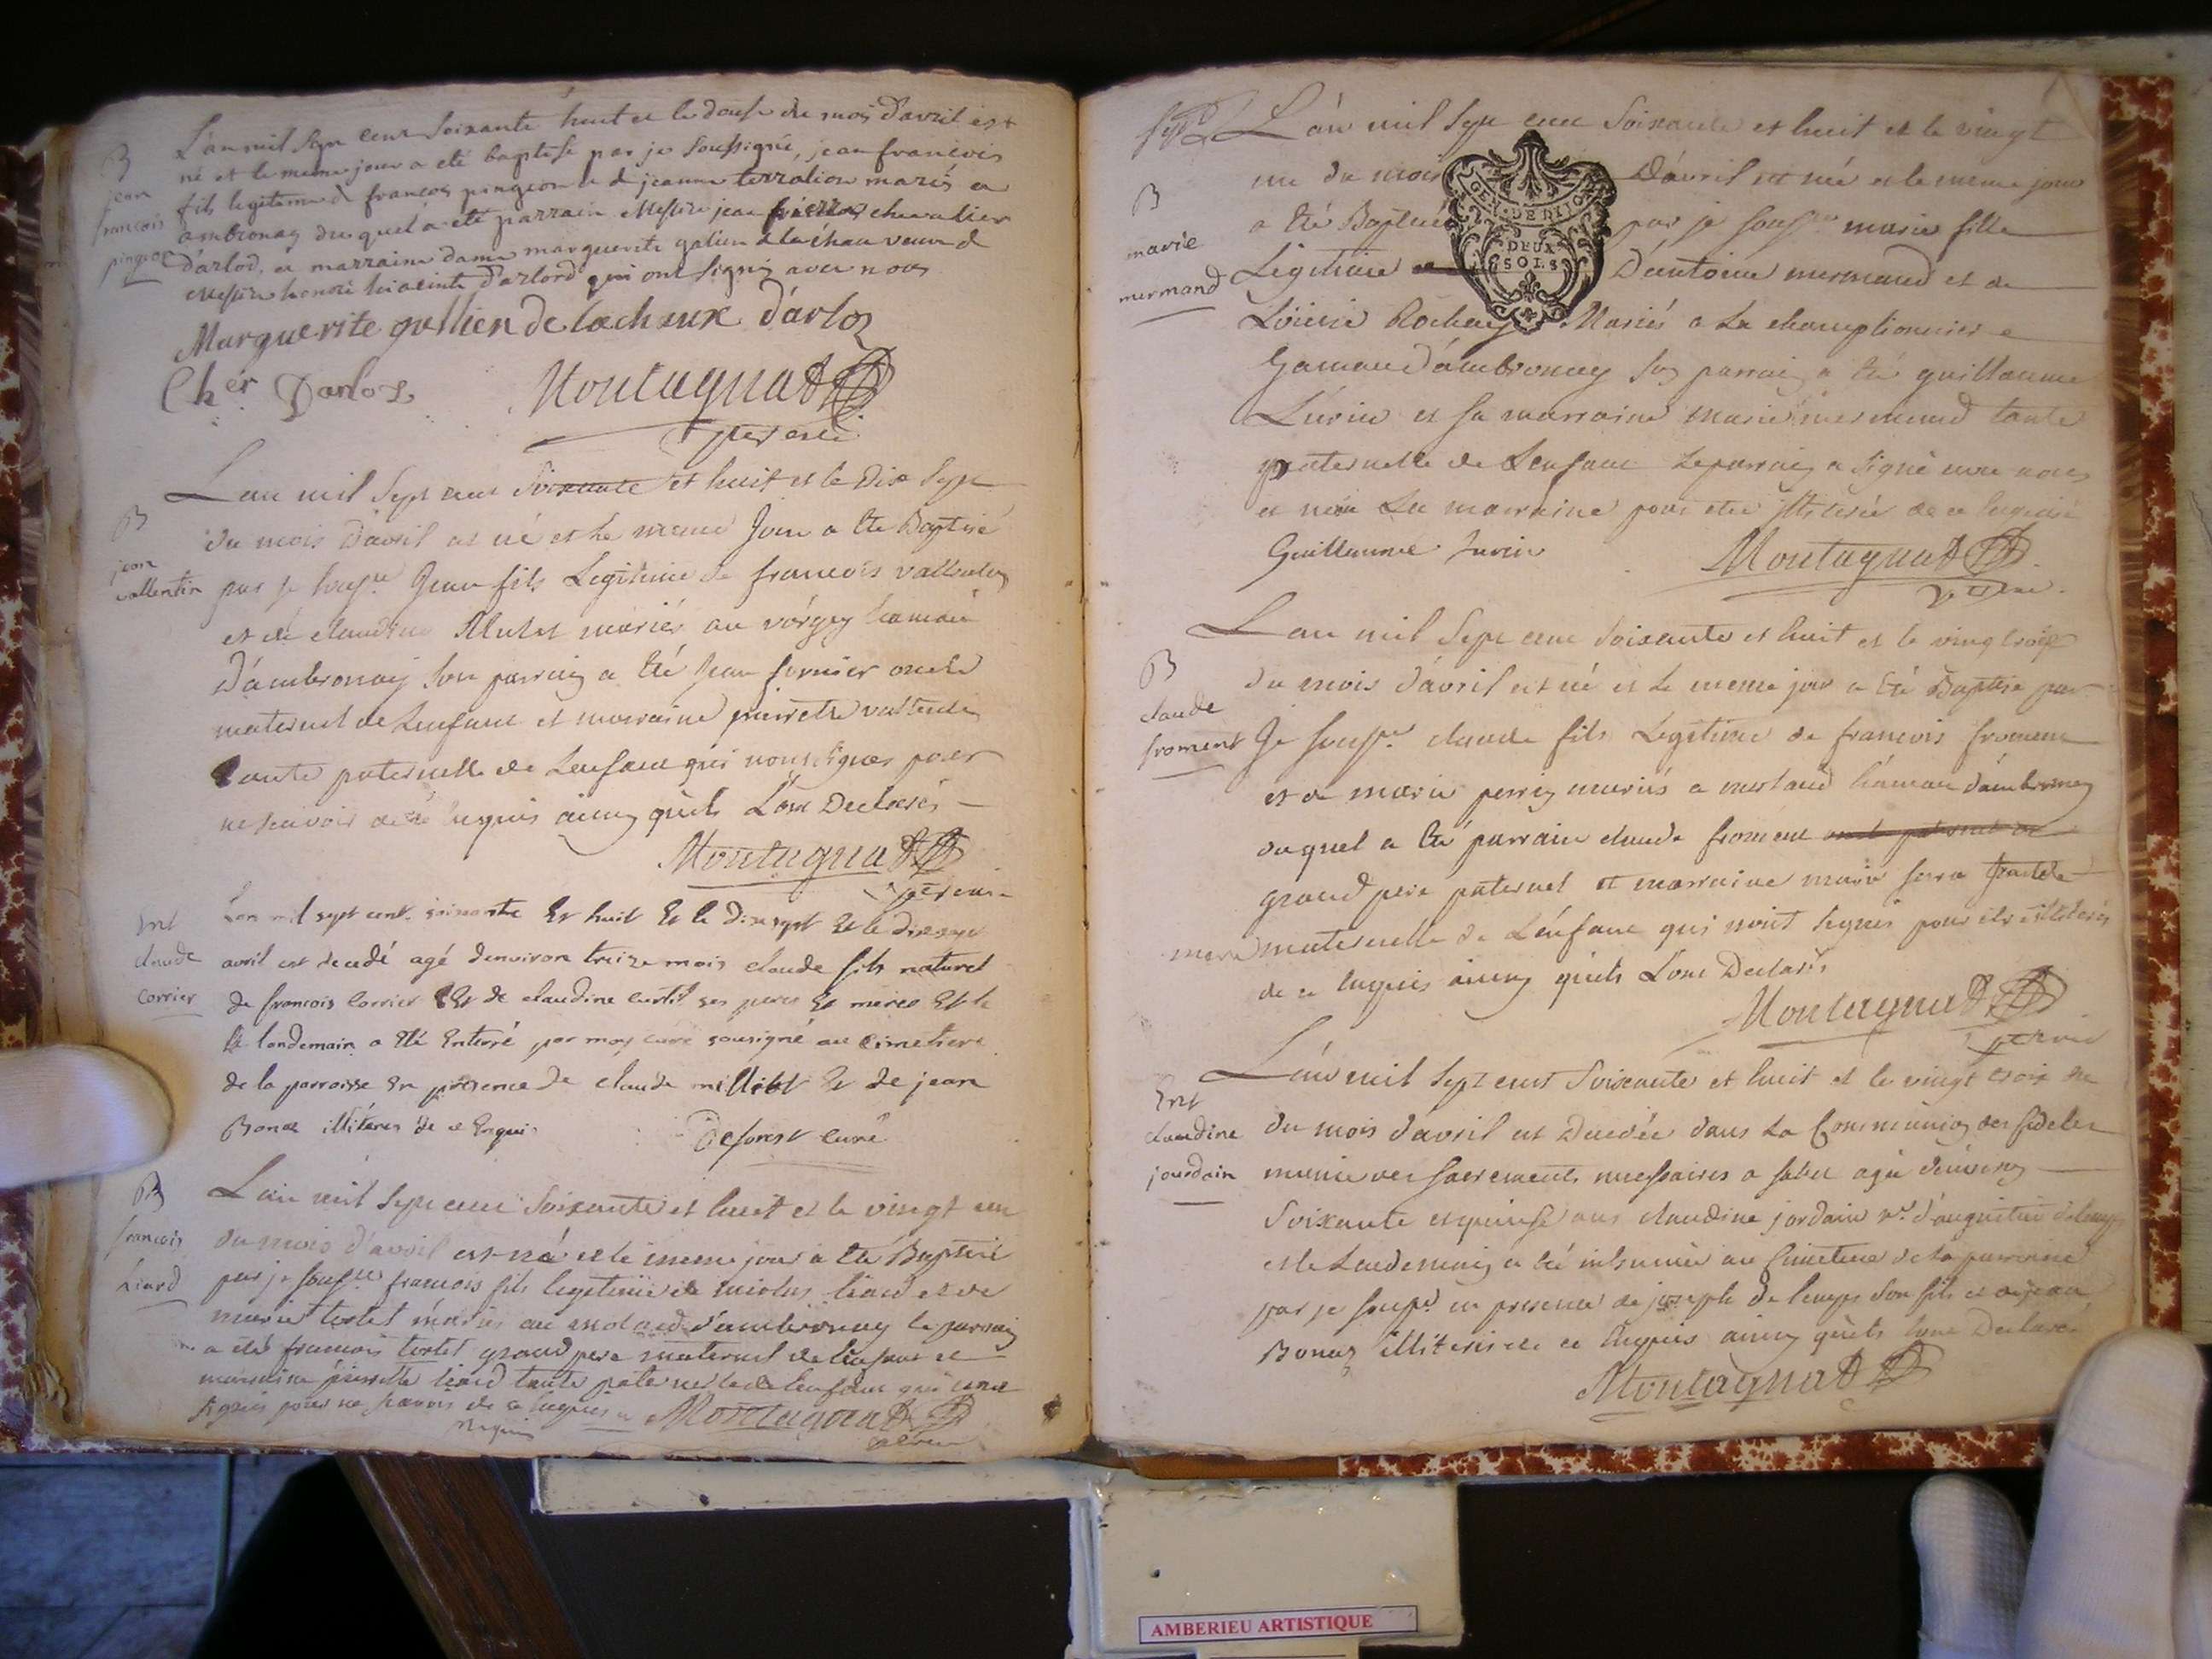 L'an mil sept cent soixante huit et le douse du mois d'avril est
né et le meme jour a eté baptisé par je soussigné, jean francois
fils legitime de francois pingeon et de jeanne terralion mariés a
ambronay du quel a eté parrain Messire jean chevalier
d'arlod, et marraine dame marguerite galien de la chau veuve de
Messire honoré hiacinte d'arlord qui ont signés avec nous
B
jean
francois
pingeon
Marguerite gallien de lachaux d'arloz
Cher Darloz
Montagnat
L'an mil sept cent soixante et huit et le dix sept
du mois d'avril est né et le meme jour a été Baptisé
par je sousne Jean fils Legitime de francois vallentin
et de claudine Mulet mariés au vorgey hamau
D'ambronay son parrain a été jean fornier oncle
maternel de Lenfant et marraine pierrette vallentin
tante paternelle de Lenfant qui nont signés pour
ne scavoir de ce enquis ainsy quils L'ont Declarés
B
jean
vallentin
Montagnat
L'an mil sept cent soixante Et huit Et le dix sept Et le dix sept
avril est decedé agé d'environ treize mois claude fils naturel
de francois Corrier Et de claudine curtil ses peres Et meres Et le
le landemain a Eté Enterré par moy curé sousigné au cimetiere
de la parroisse En presence de claude milliet Et de jean
Bonaz illitérés de ce Enquis
Ent
claude
corrier
Deforest curé
L'an mil sept cent soixante et huit et le vingt un
du mois d'avril est né et le meme jour a été Baptisé
par je sousne francois fils legitime de nicolas liard et de
marie tortet mariés au d'ambronay le parrain
a eté francois tortet grand pere maternel de lenfant et
marraine pierrette liard tante paternelle de lenfant qui nont
signés pour ne scavoir de ce enquis
B
francois
Liard
Requis
Montagnat
L'an mil sept cent soixante et huit et le vingt
un du mois D'avril est née et le meme jour
a été Baptisée par je sousne marie fille
Legitime D'antoine mermand et de
Loüise Rochay Mariés a La championniere
hamau d'ambronay son parrain a été guillaume
Juvin et sa marraine marie mermand tante
paternelle de Lenfant Le parrain a signé avec nous
et non La marraine pour etre illiterée de ce enquise
B
marie
mermand
GEN. DE DIJON
DEUX
SOLS
Guillaume Juvin
Montagnat
L'an mil sept cent soixante et huit et le vingt trois
du mois d'avril est né et le meme jour a été Baptisé par
Je sousne claude fils Legitime de francois froment
et de marie perrin mariés a merland hamau d'ambronay
duquel a été parrain claude froment
grand pere paternel et marraine marie
maternelle de Lenfant qui n'ont signés pour etre illiterés
de ce enquis ainsy quils L'ont Declarés
B
claude
froment
Montagnat
L'an mil sept cent soixante et huit et le vingt trois du
du mois d'avril est Decedée dans La Communion des fideles
munie des sacrements necessaires a salut agée d'environ
soixante et quinse ans claudine jordain ve d'augustin deleupe
et le Lendemain a été inhumée au Cimetiere de la parroisse
par je sousné en presence de joseph Deleupe son fils et de jean
Bonaz illiterés de ce enquis ainsy quils L'ont Declaré
Ent
claudine
jourdain
Montagnat
AMBERIEU ARTISTIQUE